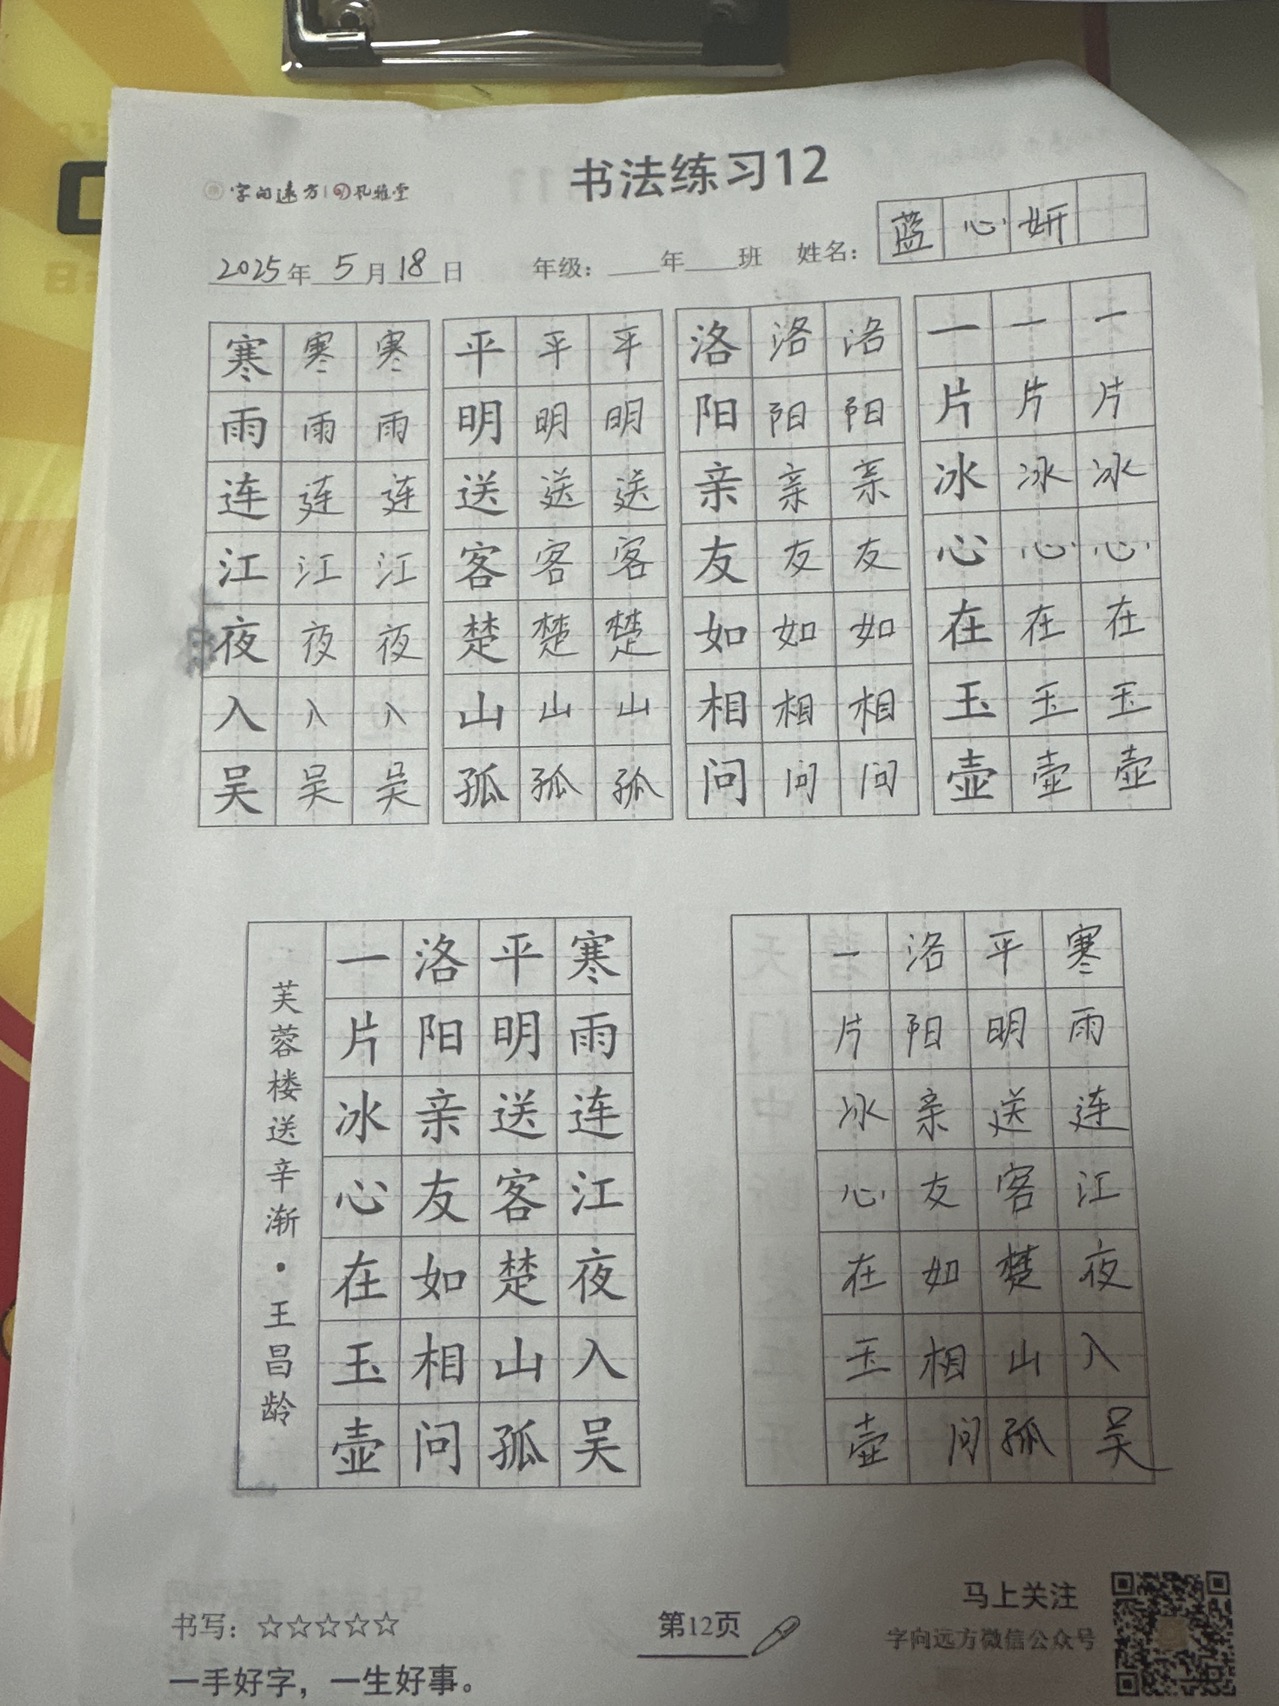 字向远方 孔雅堂
书法练习12
2025年5月18日 年级：__年__班 姓名：蓝心妍
寒寒寒 平平平 洛洛洛 一一一
雨雨雨 明明明 阳阳阳 片片片
连连连 送送送 亲亲亲 冰冰冰
江江江 客客客 友友友 心心心
夜夜夜 楚楚楚 如如如 在在在
入入入 山山山 相相相 玉玉玉
吴吴吴 孤孤孤 问问问 壶壶壶
寒雨连江夜入吴
平明送客楚山孤
洛阳亲友如相问
一片冰心在玉壶
芙蓉楼送辛渐·王昌龄
寒雨连江夜入吴
平明送客楚山孤
洛阳亲友如相问
一片冰心在玉壶
书写：☆☆☆☆☆
一手好字，一生好事。
第12页
马上关注
字向远方微信公众号